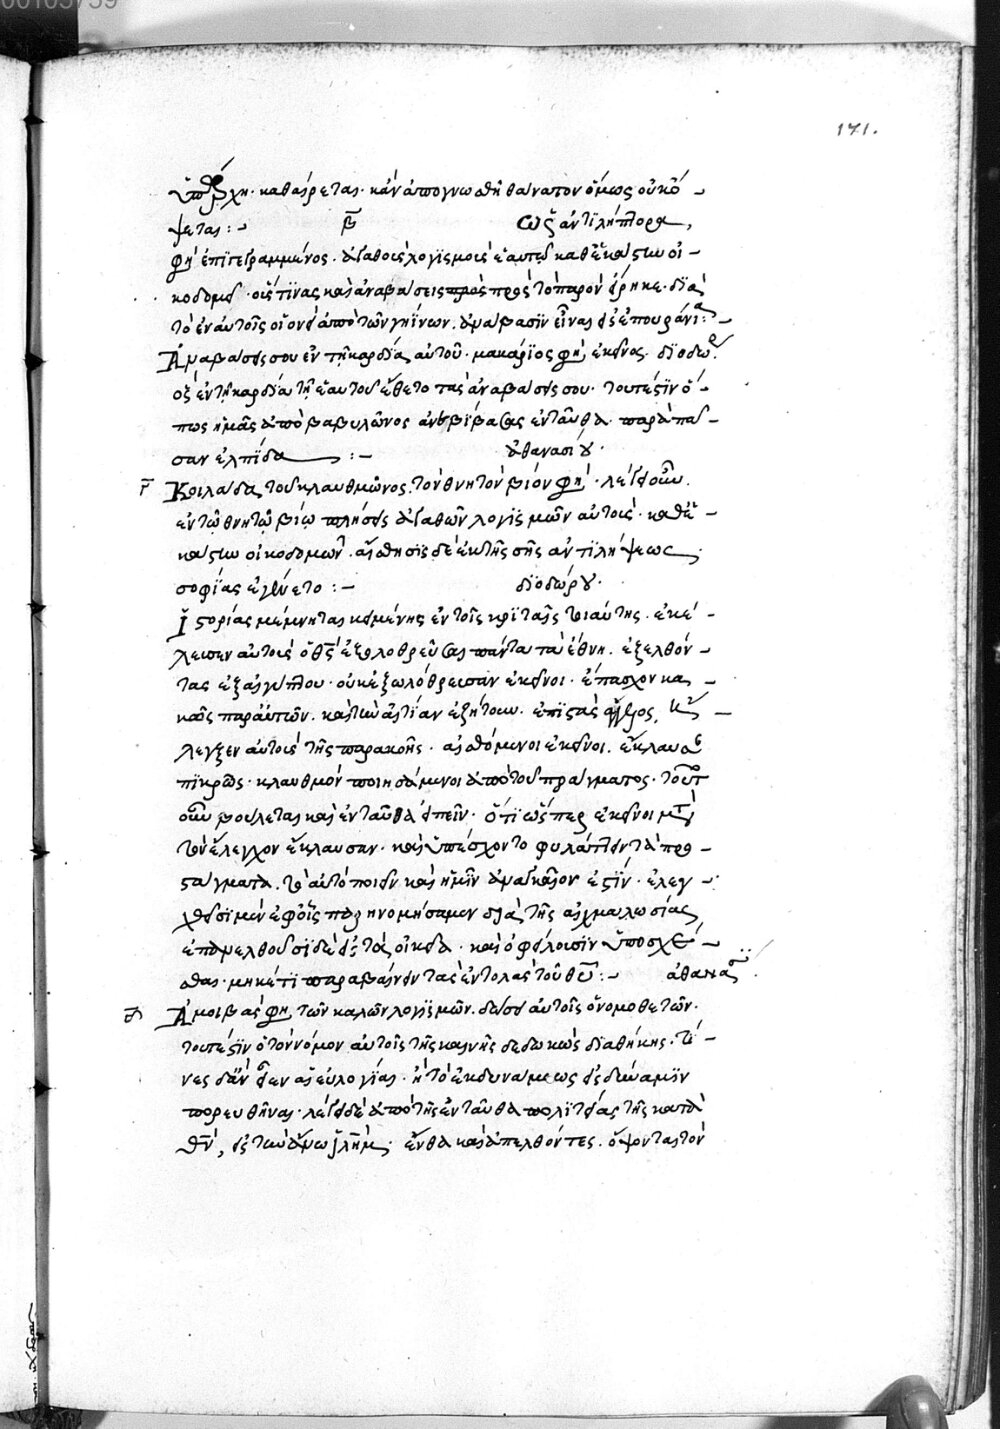 00105759
171.
ὑπάρχῃ· καθαίρεται· κἂν ἀπογνωσθῇ θάνατον ὅμως οὐ κό-
ψεται:- β ὡς ἀντιλήπτορα,
φη ἐπιγεγραμμένος· ἀγαθοὺς λογισμοὺς ἑαυτοῦ καθ' ἑκάστην οἰ-
κοδομεῖ· οὕς τινας καὶ ἀναβάσεις πρὸς τὸ παρὸν εἴρηκε· διὰ
τὸ ἐν αὐτοῖς οἱονεὶ ἀπὸ τῶν γηΐνων ἀνάβασιν εἶναι εἰς ἐπουράνια:-
Ἀναβάσεις σου ἐν τῇ καρδίᾳ αὐτοῦ· μακάριος φη ἐκεῖνος· διοδώρου
ὃς ἐν τῇ καρδίᾳ τῇ ἑαυτοῦ ἔθετο τὰς ἀναβάσεις σου· τουτέστιν ὅ-
πως ἡμᾶς ἀπὸ βαβυλῶνος ἀναβιβάσεις ἐνταῦθα παρὰ πᾶ-
σαν ἐλπίδα:- ἀθανασίου·
γ Κοιλάδα τοῦ κλαυθμῶνος τὸν θνητὸν βίον φη· λέγει οὖν
ἐν τῷ θνητῷ βίῳ πλήσεις ἀγαθῶν λογισμῶν αὐτοὺς· καθ' ἑ-
κάστην οἰκοδομῶν· αἴσθησις δὲ ἐκ τῆς σῆς ἀντιλήψεως
σοφίας ἐγένετο:- διοδώρου·
Ἱστορίας μέμνηται κειμένης ἐν τοῖς κριταῖς τοιαύτης· ἐκέ-
λευσεν αὐτοὺς ὁ θς ἐξολοθρεῦσαι πάντα τὰ ἔθνη· ἐξελθόν-
τας ἐξ αἰγύπτου· οὐκ ἐξωλόθρευσαν ἐκεῖνοι· ἔπασχον κα-
κῶς παρ' αὐτῶν· καὶ τὴν αἰτίαν ἐζήτουν· ἐπιστὰς ἄγγελος κυ
λεγξεν αὐτοὺς τῆς παρακοῆς· αἰσθόμενοι ἐκεῖνοι ἔκλαυσαν
πικρῶς· κλαυθμὸν ποιησάμενοι ἀπὸ τοῦ πράγματος· τοῦτο
οὖν βούλεται καὶ ἐνταῦθα εἰπεῖν· ὅτι ὥσπερ ἐκεῖνοι μετὰ
τὸν ἔλεγχον ἔκλαυσαν· καὶ ὑπέσχοντο φυλάττειν τὰ προ-
στάγματα· τὸ αὐτὸ ποιεῖν καὶ ἡμῖν ἀναγκαῖον ἐστὶν· ἐλεγ-
χθεῖσι μὲν ἐφ' οἷς παρηνομήσαμεν διὰ τῆς αἰχμαλωσίας
ἐπανελθοῦσι δὲ εἰς τὰ οἰκεῖα· καὶ ὀφείλουσιν ὑποσχέ-
σθαι· μηκέτι παραβαίνειν τὰς ἐντολὰς τοῦ θυ:- ἀθανασίου
δ Ἀμοιβὰς φη τῶν καλῶν λογισμῶν· δώσει αὐτοῖς ὁ νομοθετῶν·
τουτέστιν ὁ τὸν νόμον αὐτοῖς τῆς καινῆς δεδωκὼς διαθήκης· τί-
νες δ' ἂν εἶεν αἱ εὐλογίαι· ἢ τὸ ἐκ δυνάμεως εἰς δύναμιν
πορευθῆναι· λέγει δὲ ἀπὸ τῆς ἐνταῦθα πολιτείας τῆς κατὰ
θν, εἰς τὴν ἄνω ιλημ· ἔνθα καὶ ἀπελθόντες· ὄψονται τὸν